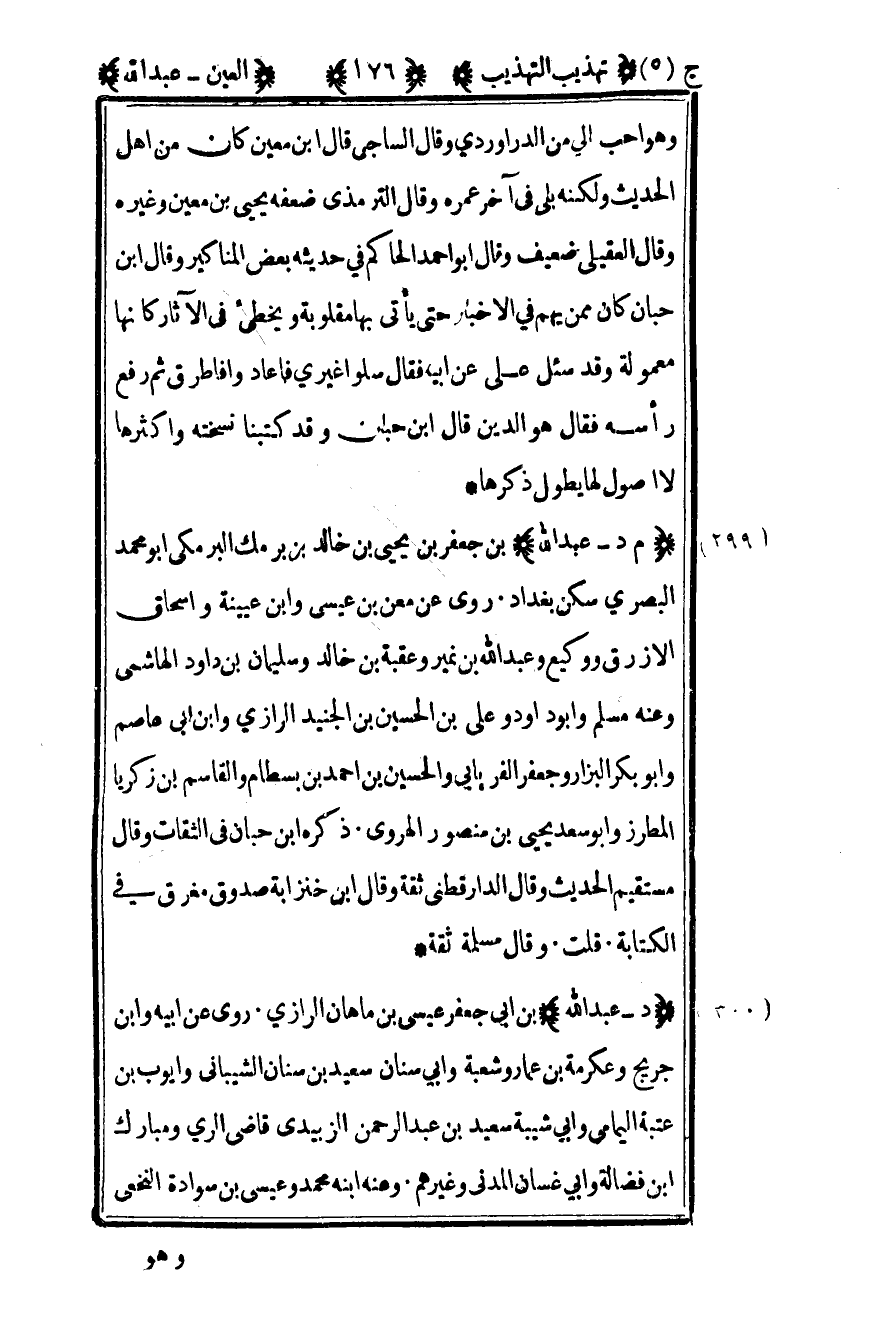 ج (٥) ﴿ تهذيب التهذيب ﴾ ﴿ ١٧٦ ﴾ ﴿ العين - عبدالله ﴾
وهو احب الي من الدراوردي وقال الساجي قال ابن معين كان من اهل
الحديث ولكنه بلى فى آخر عمره وقال الترمذى ضعفه يحيى بن معين وغيره
وقال العقيلى ضعيف وقال ابو احمد الحاكم في حديثه بعض المناكير وقال ابن
حبان كان ممن يهم في الاخبار حتى يأتى بها مقلوبة ويخطئ فى الآثار كانها
معمولة وقد سئل على عن ابيه فقال سلوا غيري فاعاد وا فاطرق ثم رفع
رأسه فقال هو الدين قال ابن حبان وقد كتبنا نسخته واكثرها
لا اصول لها يطول ذكرها*
(٢٩٩) ﴿ م د - عبدالله ﴾ بن جعفر بن يحيى بن خالد بن برمك البرمكى ابو محمد
البصري سكن بغداد · روى عن معن بن عيسى وابن عيينة و اسحاق
الازرق ووكيع وعبدالله بن نمير وعقبة بن خالد وسليمان بن داود الهاشمى
وعنه مسلم وابود اودو على بن الحسين بن الجنيد الرازي وابن ابى عاصم
وابو بكر البزار وجعفر الفريابي والحسين بن احمد بن بسطام والقاسم بن زكريا
المطرز وابو سعد يحيى بن منصور الهروى · ذكره ابن حبان فى الثقات وقال
مستقيم الحديث وقال الدار قطنى ثقة وقال ابن خنزابة صدوق مغرق في
الكتابة · قلت · وقال مسلمة ثقة*
(٣٠٠) ﴿ د - عبدالله ﴾ بن ابي جعفر عيسى بن ماهان الرازي · روى عن ابيه وابن
جريج وعكرمة بن عمار وشعبة وابي سنان سعيد بن سنان الشيبانى وايوب بن
عتبة اليمامى وابي شيبة سعيد بن عبدالرحمن الزبيدى قاضى الري ومبارك
ابن فضالة وابي غسان المدنى وغيرهم · وعنه ابنه محمد وعيسى بن سوادة النخعى
وهو